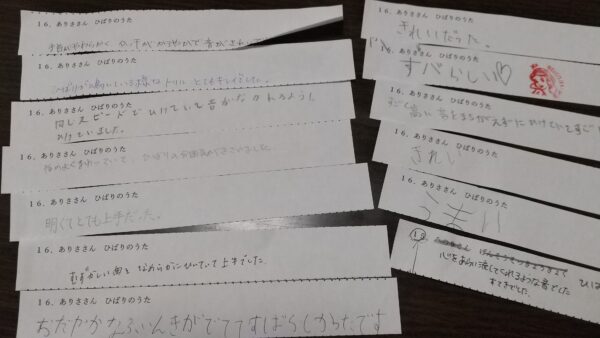 16. ありささん ひばりのうた
手首がやわらかく
16. ありささん ひばりのうた
ひばりが鳴いている様なトリル とてもキレイでした。
16. ありささん ひばりのうた
同じスピードでひけていて音がながれるよう!
ひけていました。
16. ありささん ひばりのうた
16. ありささん ひばりのうた
明くてとても上手だった。
16. ありささん ひばりのうた
むずかしい曲をなめらかにひいていて上手でした。
16. ありささん ひばりのうた
おだやかなふいんきがでててすばらしかったです
16. ありささん ひばりのうた
きれいだった。
16. ありささん ひばりのうた
すばらしい♡
16. ありささん ひばりのうた
高い音をまちがえずに
16. ありささん ひばりのうた
きれい
16. ありささん ひばりのうた
うまい
心をあらい流してくれるような音でした
すてきでした。